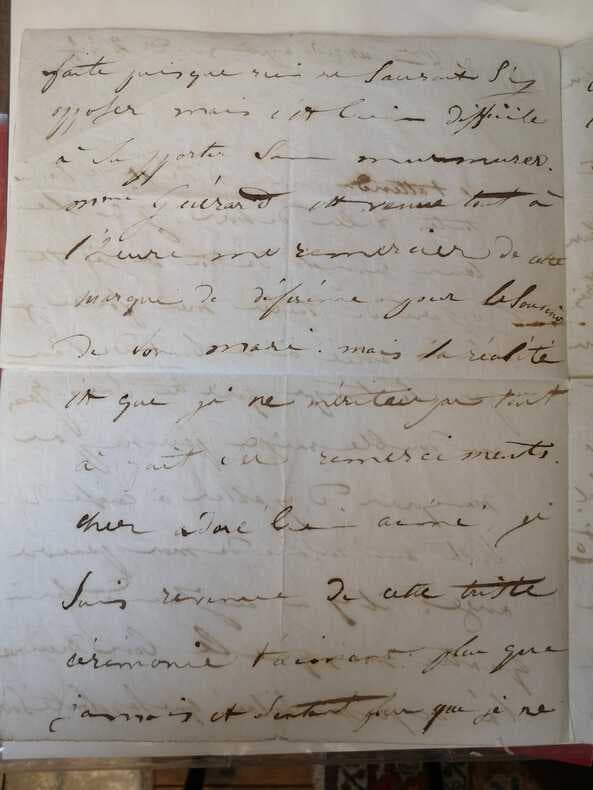 faite puisque rien ne saurait s'y
opposer mais c'est bien difficile
à supporter sans murmurer.
mme Guérard est venue tout à
l'heure me remercier de cette
marque de déférence pour le souvenir
de son mari. mais la réalité
est que je ne méritais pas tout
à fait ces remerciments.
cher adoré bien aimé, je
suis revenue de cette triste
cérémonie t'aimant plus que
jamais et sentant que je ne